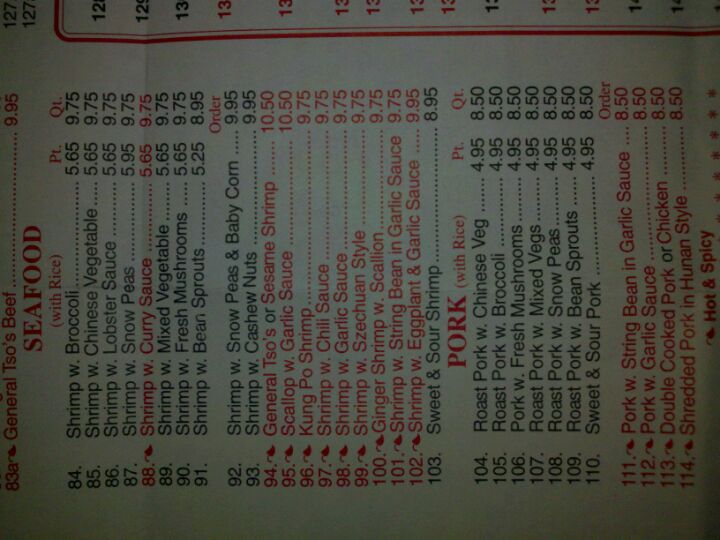 83a. General Tso's Beef 9.95
SEAFOOD
(with Rice) Pt. Qt.
84. Shrimp w. Broccoli 5.65 9.75
85. Shrimp w. Chinese Vegetable 5.65 9.75
86. Shrimp w. Lobster Sauce 5.65 9.75
87. Shrimp w. Snow Peas 5.95 9.75
88. Shrimp w. Curry Sauce 5.65 9.75
89. Shrimp w. Mixed Vegetable 5.65 9.75
90. Shrimp w. Fresh Mushrooms 5.65 9.75
91. Shrimp w. Bean Sprouts 5.25 8.95
Order
92. Shrimp w. Snow Peas & Baby Corn 9.95
93. Shrimp w. Cashew Nuts 9.95
94. General Tso's or Sesame Shrimp 10.50
95. Scallop w. Garlic Sauce 10.50
96. Kung Po Shrimp 9.75
97. Shrimp w. Chili Sauce 9.75
98. Shrimp w. Garlic Sauce 9.75
99. Shrimp w. Szechuan Style 9.75
100. Ginger Shrimp w. Scallion 9.75
101. Shrimp w. String Bean in Garlic Sauce 9.75
102. Shrimp w. Eggplant & Garlic Sauce 9.95
103. Sweet & Sour Shrimp 8.95
PORK (with Rice) Pt. Qt.
104. Roast Pork w. Chinese Veg 4.95 8.50
105. Roast Pork w. Broccoli 4.95 8.50
106. Pork w. Fresh Mushrooms 4.95 8.50
107. Roast Pork w. Mixed Vegs 4.95 8.50
108. Roast Pork w. Snow Peas 4.95 8.50
109. Roast Pork w. Bean Sprouts 4.95 8.50
110. Sweet & Sour Pork 4.95 8.50
Order
111. Pork w. String Bean in Garlic Sauce 8.50
112. Pork w. Garlic Sauce 8.50
113. Double Cooked Pork or Chicken 8.50
114. Shredded Pork in Hunan Style 8.50
Hot & Spicy
127